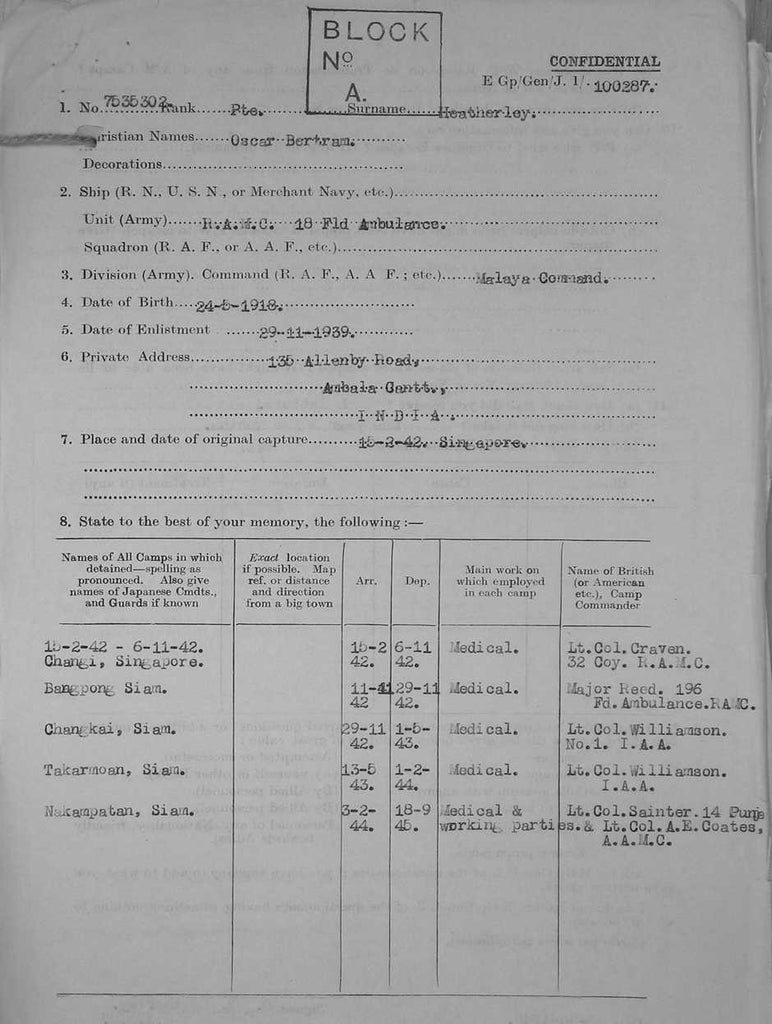 BLOCK
Nº
A.
CONFIDENTIAL
E Gp/Gen/J. 1/. 100287.
1. No. 7535302 Rank......Pte. Surname.....Heatherley.
ristian Names......Oscar Bertram.
Decorations
2. Ship (R. N., U. S. N., or Merchant Navy, etc.)
Unit (Army)......R.A.M.C. 18 Fld Ambulance.
Squadron (R. A. F., or A. A. F., etc.)
3. Division (Army). Command (R. A. F., A. A F. ; etc.)......Malaya Command.
4. Date of Birth.....24-5-1918.
5. Date of Enlistment .......29-11-1939.
6. Private Address............135 Allenby Road,
Ambala Cantt.,
I N D I A .
7. Place and date of original capture.........15-2-42. Singapore.
8. State to the best of your memory, the following :—
Names of All Camps in which detained—spelling as pronounced. Also give names of Japanese Cmdts., and Guards if known
Exact location if possible. Map ref. or distance and direction from a big town
Arr.
Dep.
Main work on which employed in each camp
Name of British (or American etc.), Camp Commander
15-2-42 - 6-11-42. 15-2 6-11 Medical. Lt.Col.Craven.
Changi, Singapore. 42. 42. 32 Coy. R.A.M.C.
Bangpong Siam. 11-11 29-11 Medical. Major Reed. 196
42 42. Fd. Ambulance.RAMC.
Changkai, Siam. 29-11 1-5- Medical. Lt.Col.Williamson.
42. 43. No.1. I.A.A.
Takarmoan, Siam. 13-5 1-2- Medical. Lt.Col.Williamson.
43. 44. I.A.A.
Nakampatan, Siam. 3-2- 18-9 Medical & Lt.Col.Sainter.14 Punj
44. 45. working parties.& Lt.Col.A.E.Coates,
A.A.M.C.